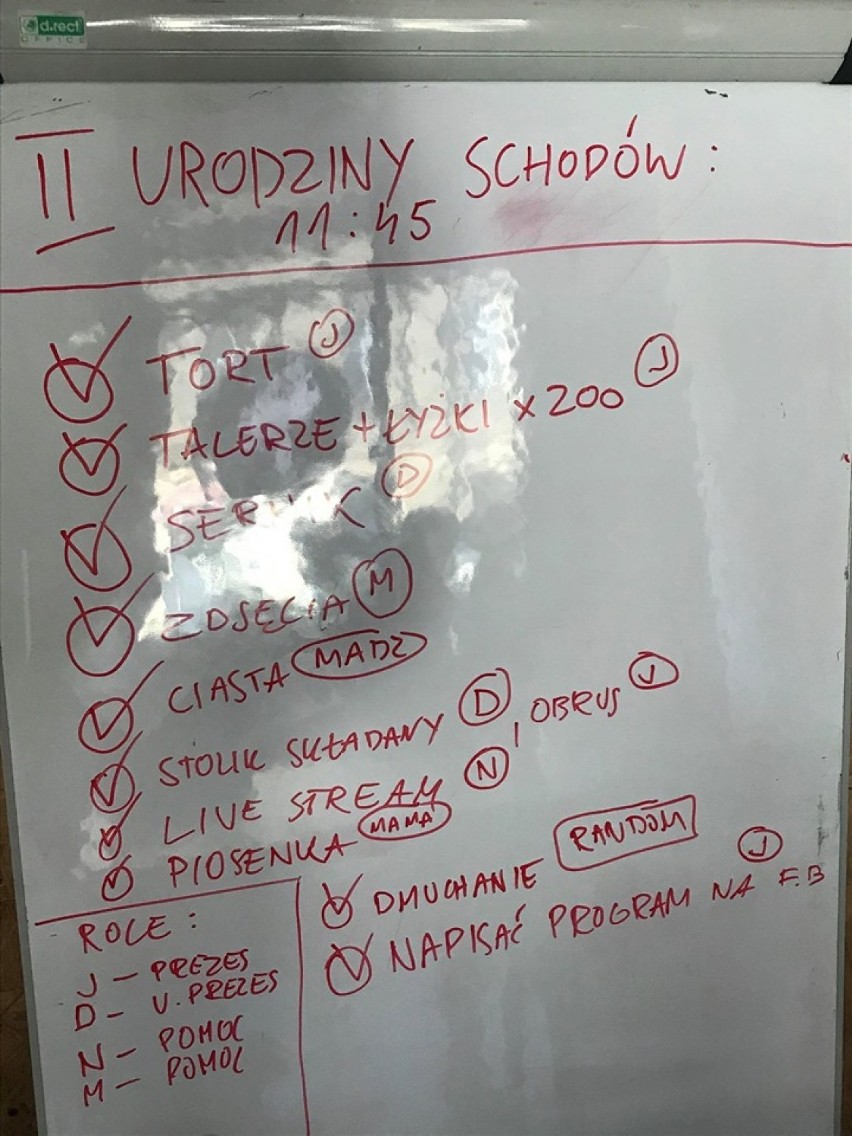 d.rect
OFFICE
II URODZINY SCHODÓW:
11:45
TORT J
TALERZE + ŁYŻKI x 200 J
D
ZDJĘCIA M
CIASTA MADZ
STOLIK SKŁADANY D, OBRUS J
LIVE STREAM N
PIOSENKA MAMA
DMUCHANIE RANDOM
NAPISAĆ PROGRAM NA F.B J
ROLE:
J - PREZES
D - V. PREZES
N - POMOC
M - POMOC